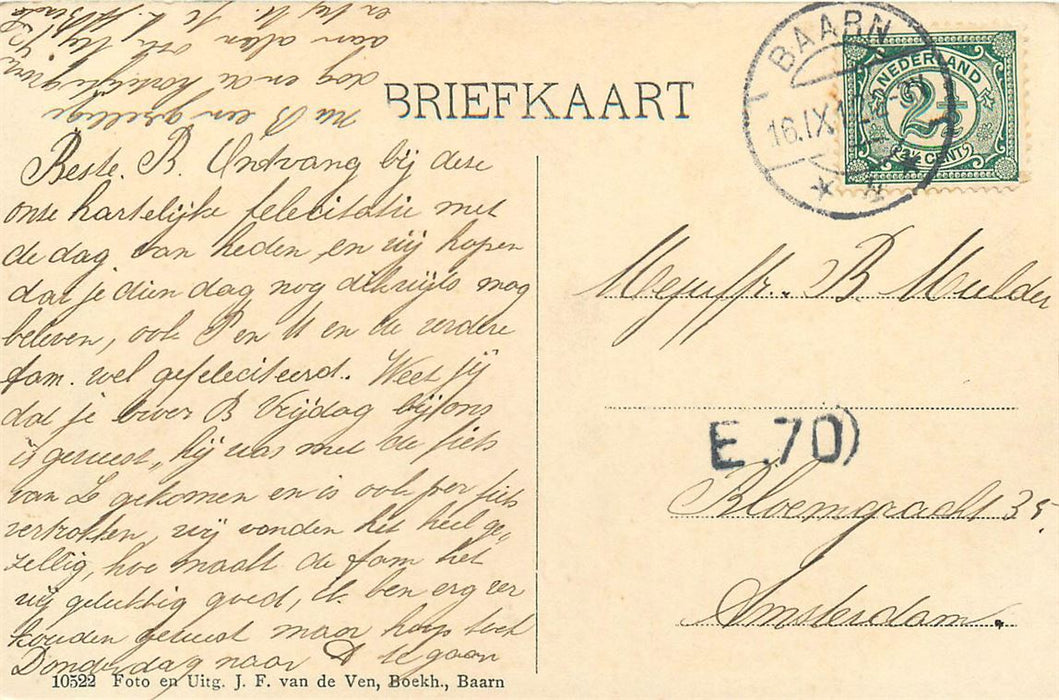 BRIEFKAART
BAARN
16.IX.12
NEDERLAND
2½
2½ CENT
Beste B. Ontvang bij deze
onze hartelijke felicitatie met
de dag van heden, en wij hopen
dat je dien dag nog dikwijls mag
beleven, ook P en M en de verdere
fam. wel gefeliciteerd. Weet jij
dat je broer B Vrijdag bij ons
is geweest, hij was met de fiets
van L gekomen en is ook per fiets
vertrokken, wij vonden het heel ge„
zellig, hoe maakt de fam het
wij gelukkig goed, ik ben erg ver
kouden geweest maar hoop toch
Donderdag naar A te gaan
nu B een gezellige
dag en de hartelijke
aan allen ook
Mejuffr. B. Mulder
E.70)
Bloemgracht 35
Amsterdam.
10522 Foto en Uitg. J. F. van de Ven, Boekh., Baarn